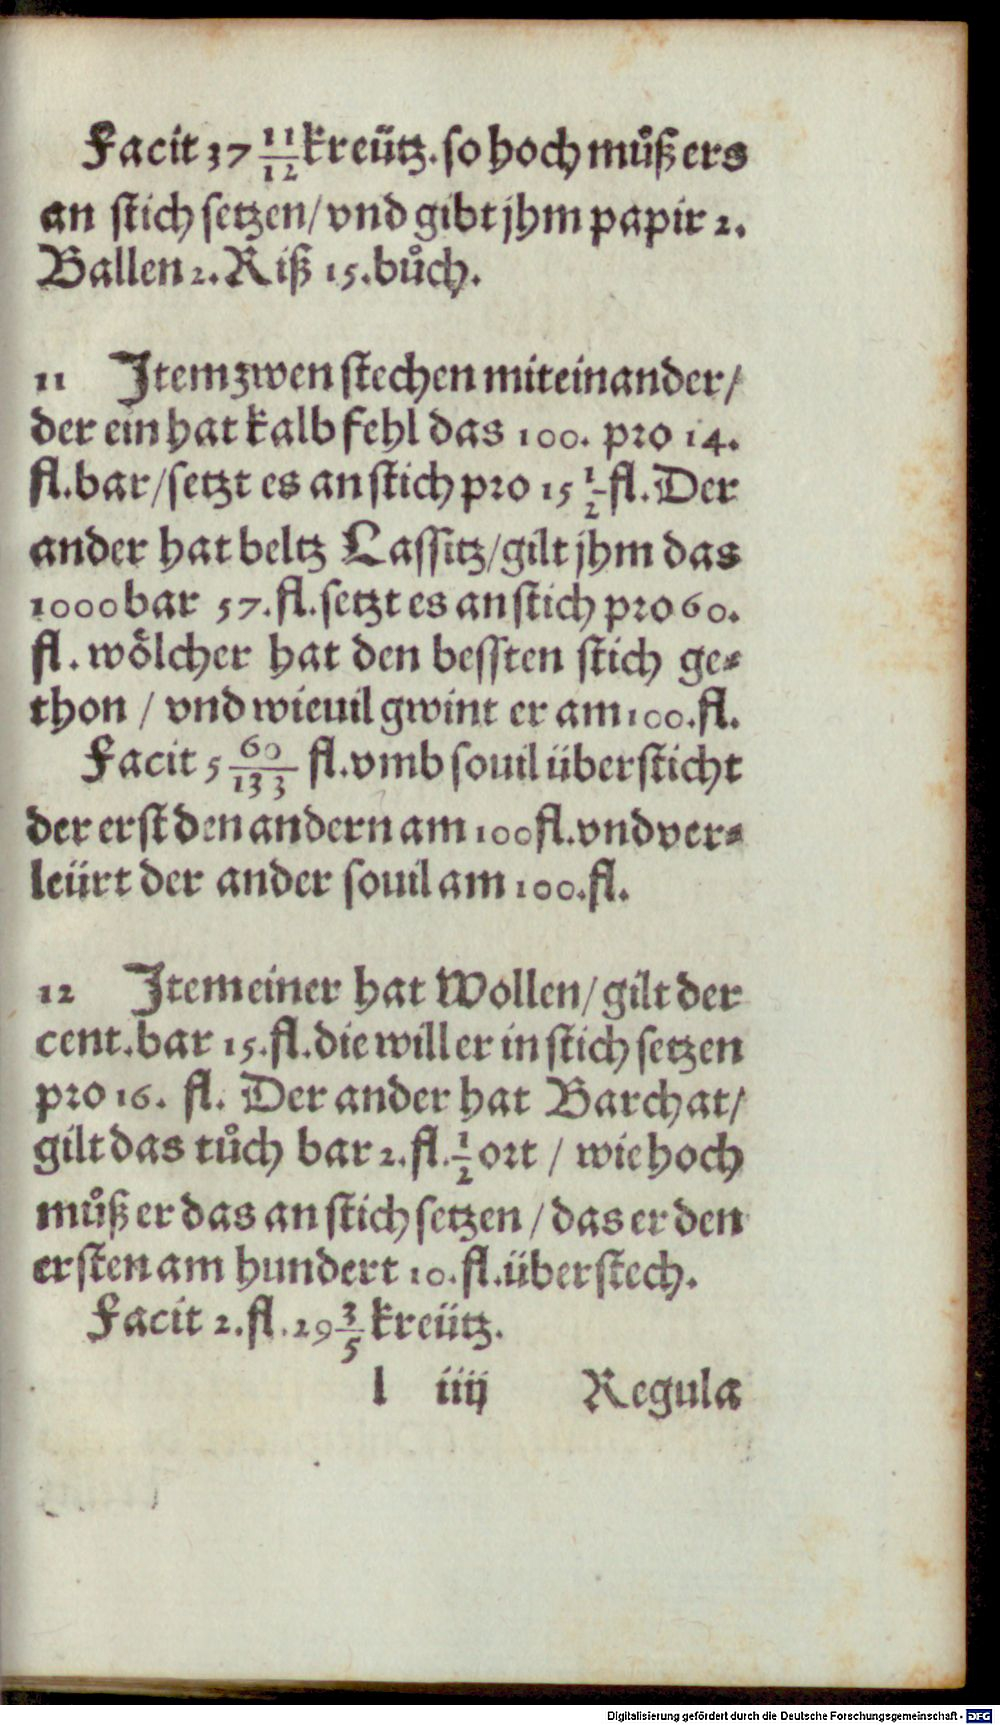 Facit 37 11/12 kreütz. so hoch můß ers
an stich setzen/ vnd gibt jhm papir 2.
Ballen 2. Riß 15. bůch.
11 Item zwen stechen miteinander/
der ein hat kalbfehl das 100. pro 14.
fl. bar/ setzt es an stich pro 15 1/2 fl. Der
ander hat beltz Lassitz/ gilt jhm das
1000 bar 57. fl. setzt es an stich pro 60.
fl. wölcher hat den bessten stich ge⸗
thon / vnd wieuil gwint er am 100. fl.
Facit 5 60/133 fl. vmb souil übersticht
der erst den andern am 100 fl. vnd ver⸗
leürt der ander souil am 100. fl.
12 Item einer hat Wollen/ gilt der
cent. bar 15. fl. die will er in stich setzen
pro 16. fl. Der ander hat Barchat/
gilt das tůch bar 2. fl. 1/2 ort / wie hoch
můß er das an stich setzen / das er den
ersten am hundert 10. fl. überstech.
Facit 2. fl. 29 3/5 kreütz.
l iiij Regula
Digitalisierung gefördert durch die Deutsche Forschungsgemeinschaft - DFG